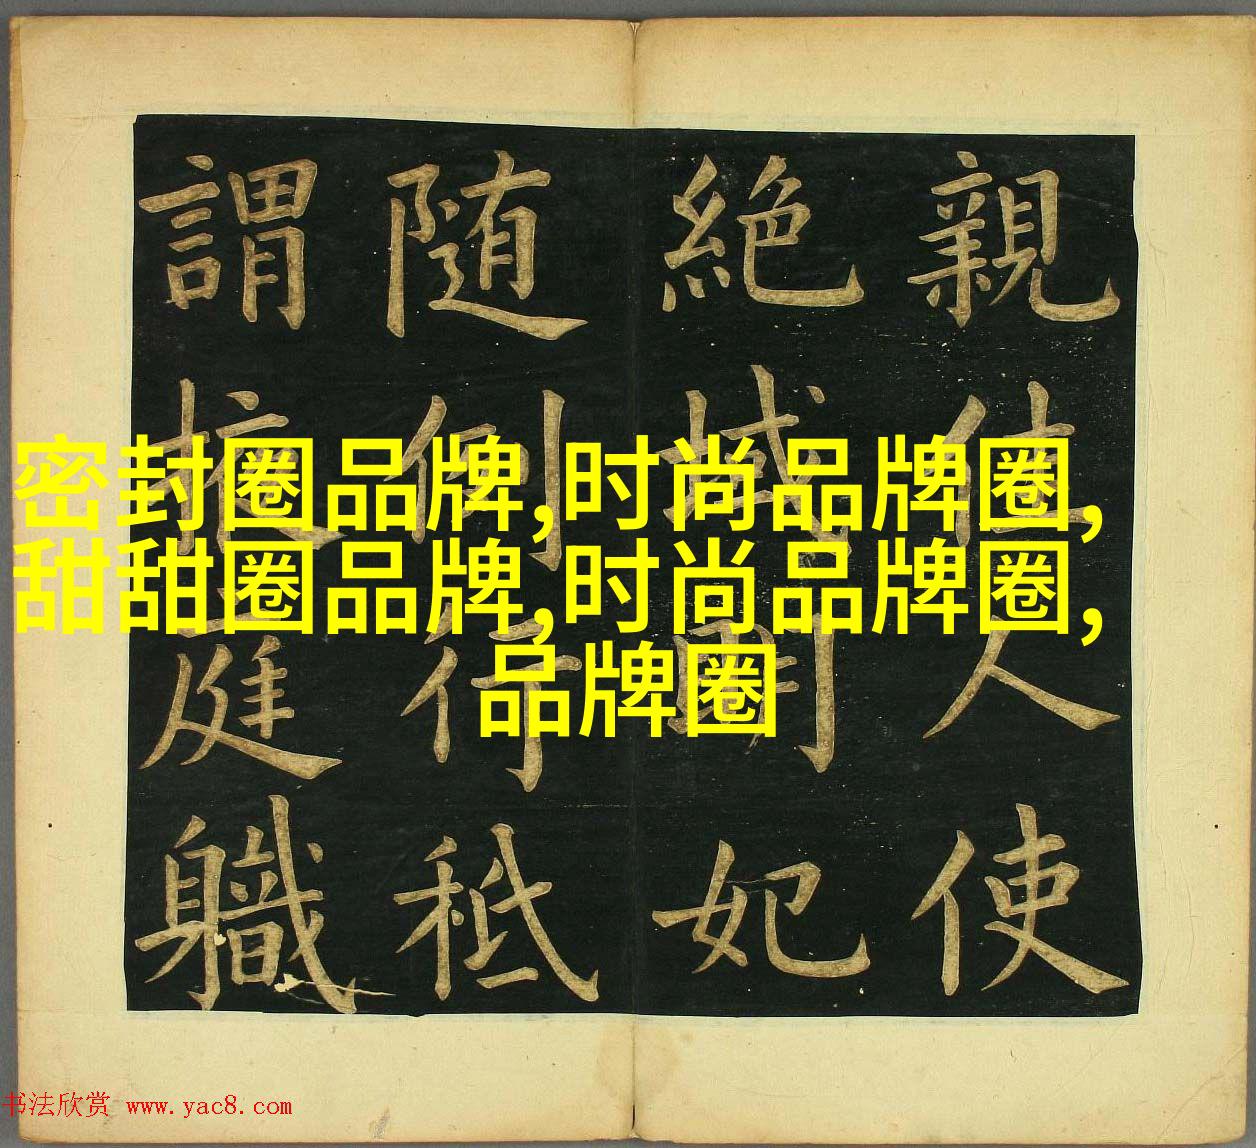 親人使
絶域妃
随行秪
謂掖庭職
密封圈品牌,时尚品牌圈,
甜甜圈品牌,时尚品牌圈,
品牌圈
书法欣赏 www.yac8.com